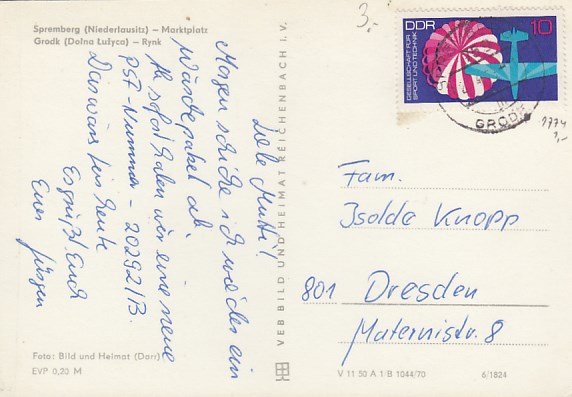 Spremberg (Niederlausitz) – Marktplatz
Grodk (Dolna Łužyca) – Rynk
Liebe Mutti!
Morgen schicke ich wieder ein
Wäschepaket ab
Ab sofort haben wir eine neue
PSF-Nummer - 20292/B.
Das wärs für heute
Es grüßt Euch
Euer Jürgen
Foto: Bild und Heimat (Darr)
EVP 0,20 M
VEB BILD UND HEIMAT REICHENBACH I. V.
3,-
DDR 10
GESELLSCHAFT FÜR
SPORT UND TECHNIK
GRODK
1774
1,-
Fam.
Isolde Knopp
801 Dresden
Maternistr. 8
V 11 50 A 1/B 1044/70 6/1824